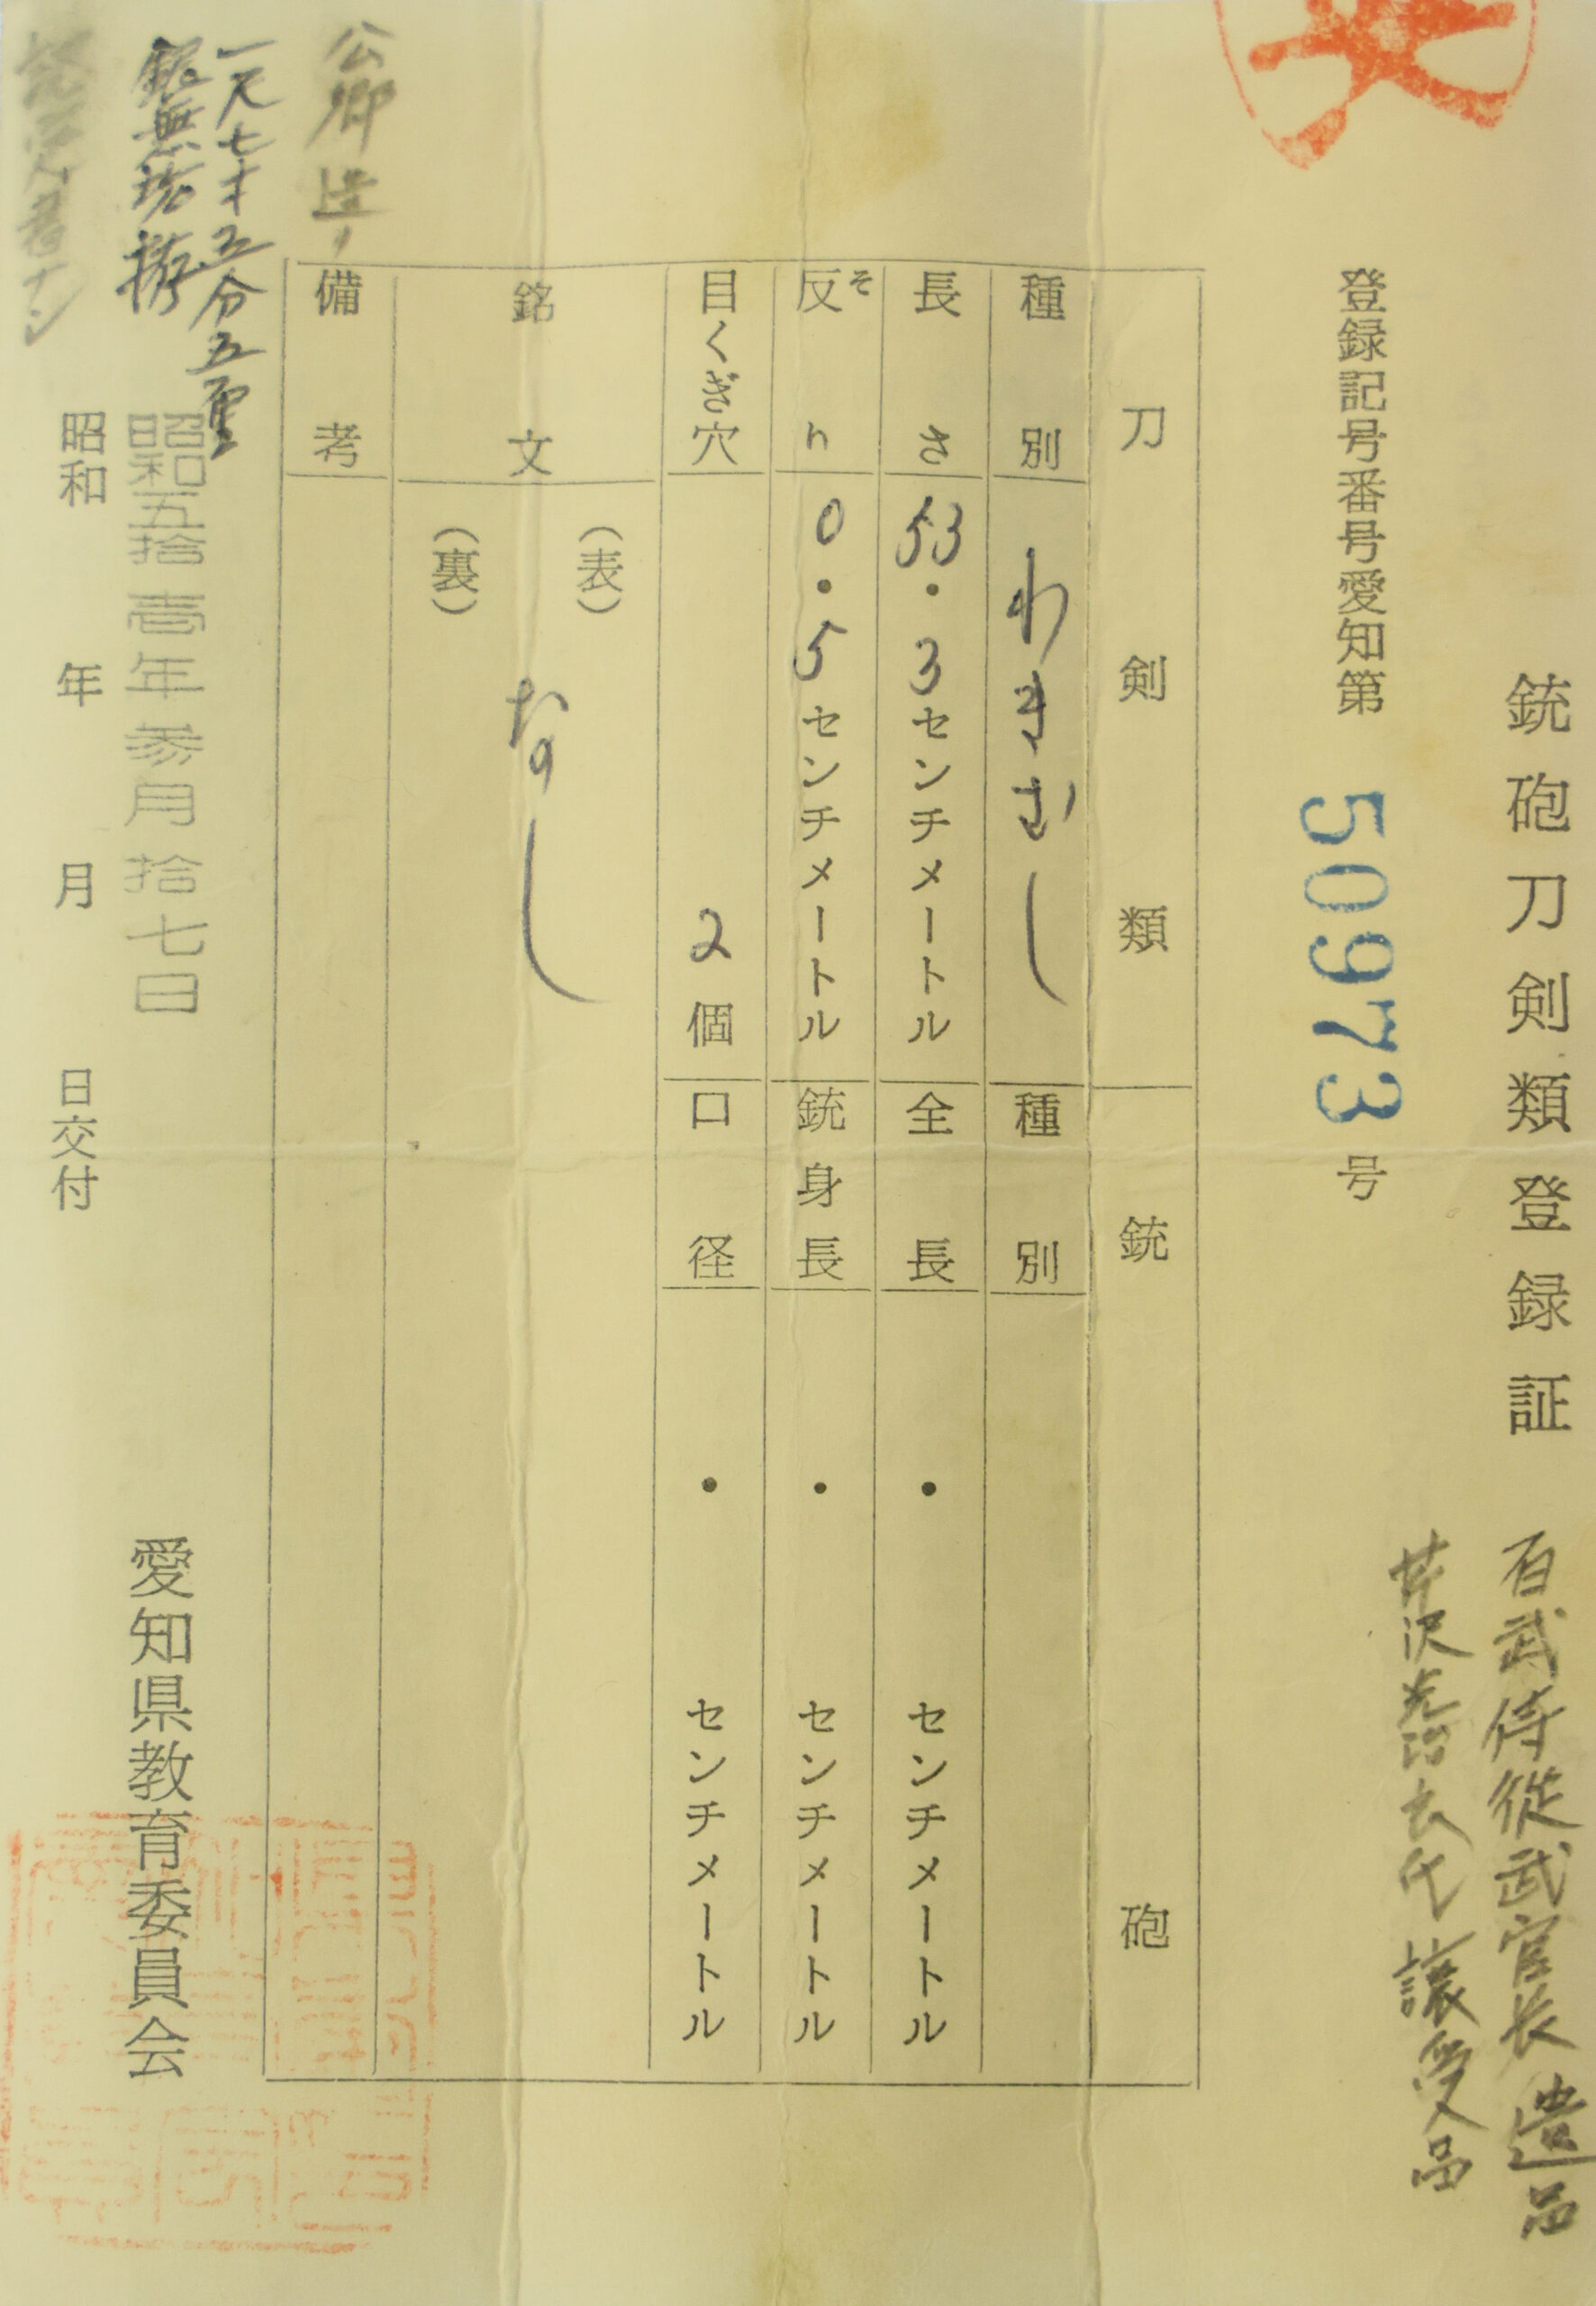 銃砲刀剣類登録証
百武侍従武官長遺品
芹沢光治良氏譲受品
登録記号番号愛知第 50973 号
刀剣類
銃砲
種別 わきざし
種別
長さ 53.3センチメートル
全長 ・ センチメートル
反り そ 0.5センチメートル
銃身長 ・ センチメートル
目くぎ穴 2個
口径 ・ センチメートル
銘文 (表) なし
(裏)
備考
公卿
一尺七寸五分五厘
銘無
昭和五拾壱年参月拾七日
昭和 年 月 日交付
愛知県教育委員会